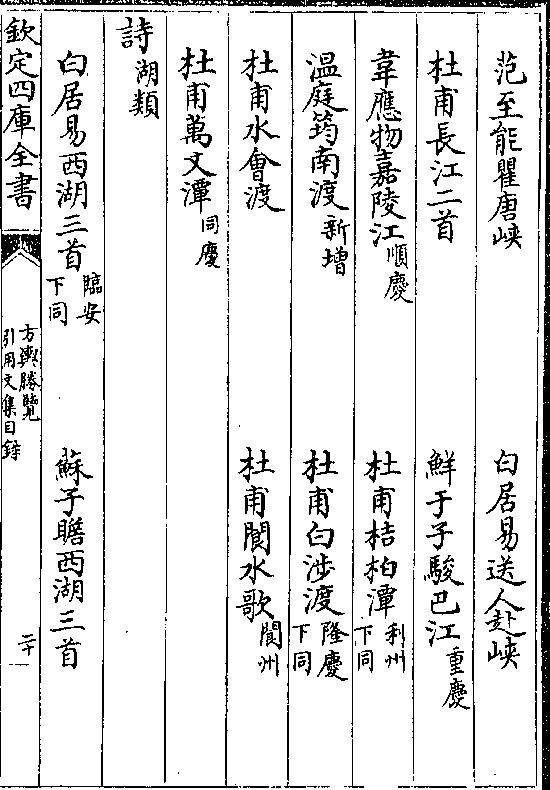 范至能瞿唐峽　白居易送人赴峽
杜甫長江二首　鮮于子駿巴江重慶
韋應物嘉陵江順慶　杜甫桔柏潭利州下同
溫庭筠南渡新增　杜甫白涉渡隆慶下同
杜甫水會渡　杜甫閬水歌閬州
杜甫萬丈潭同慶
詩湖類
白居易西湖三首臨安下同　蘇子瞻西湖三首
欽定四庫全書　方輿勝覽引用文集目錄　二十